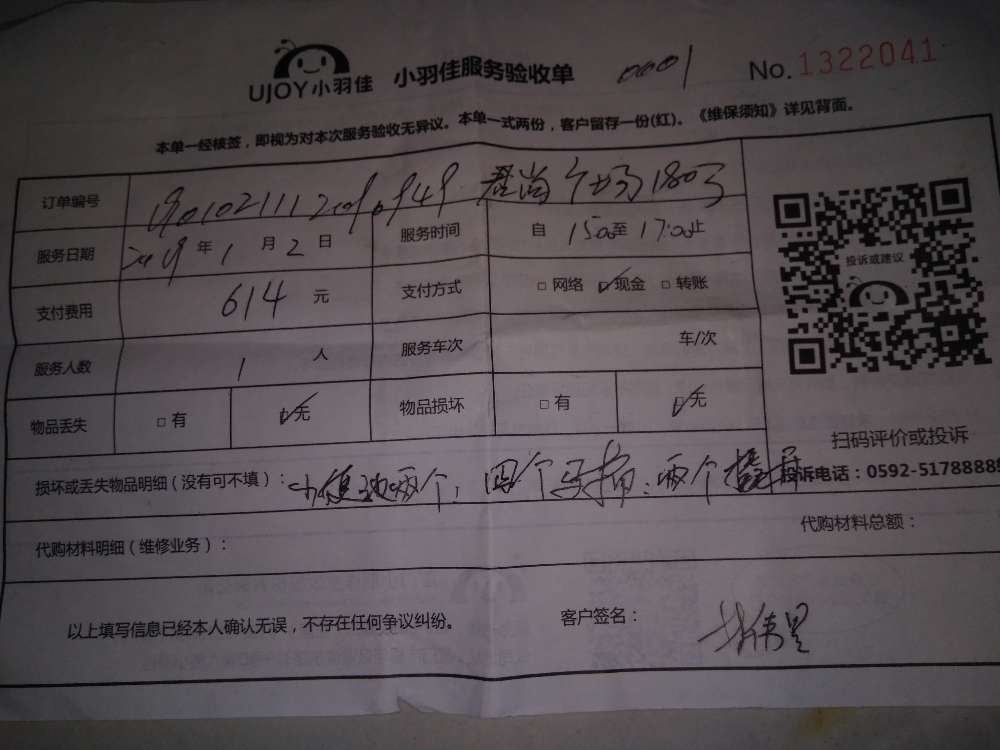 UJOY小羽佳 小羽佳服务验收单 0001 No.1322041
本单一经核签，即视为对本次服务验收无异议。本单一式两份，客户留存一份(红)。《维保须知》详见背面。
订单编号
服务日期 2019 年 1 月 2 日 服务时间 自 15:00 至 17:00 止
投诉或建议
支付费用 614 元 支付方式 □ 网络 ☑ 现金 □ 转账
服务人数 1 人 服务车次 车/次
物品丢失 □ 有 ☑ 无 物品损坏 □ 有 ☑ 无
扫码评价或投诉
损坏或丢失物品明细（没有可不填）： 小便池两个，四个马桶：两个
投诉电话：0592-5178888
代购材料明细（维修业务）： 代购材料总额：
以上填写信息已经本人确认无误，不存在任何争议纠纷。 客户签名：